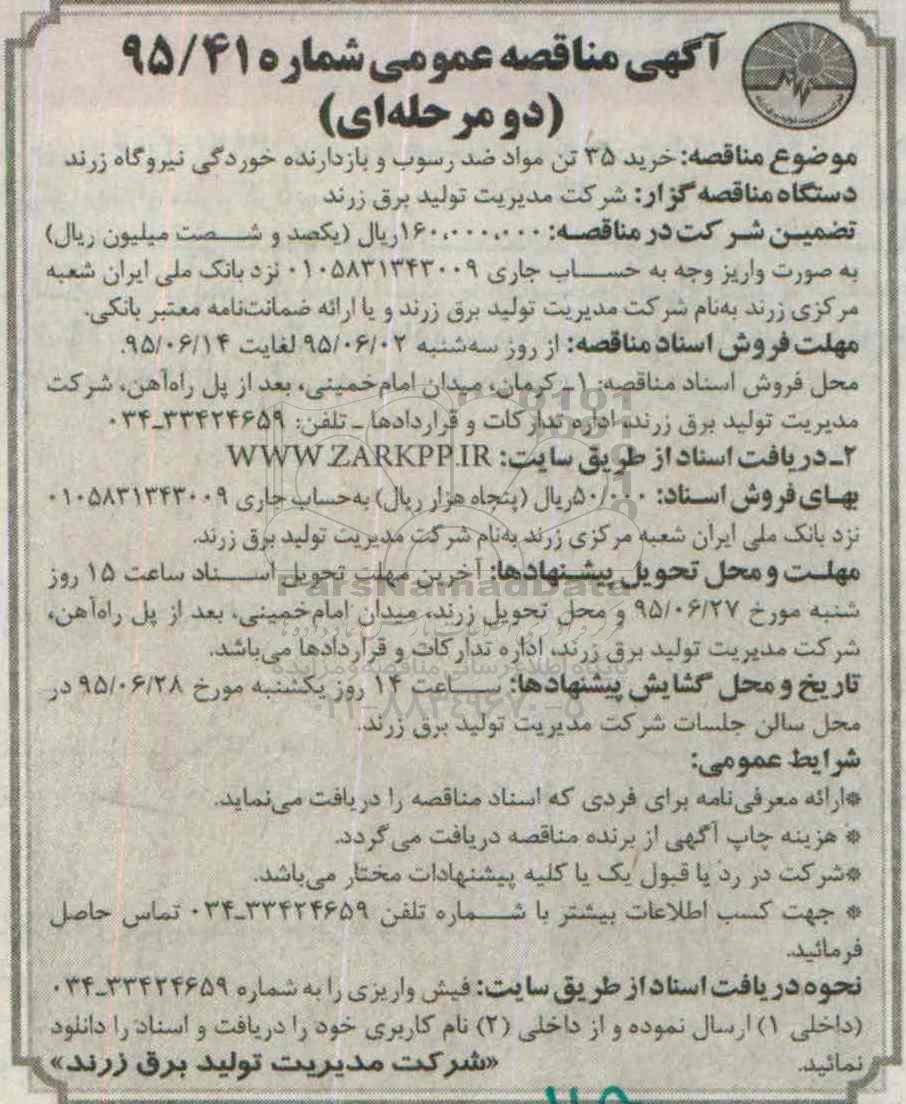 آگهی مناقصه عمومی شماره ۹۵/۴۱
(دو مرحله‌ای)
موضوع مناقصه: خرید ۳۵ تن مواد ضد رسوب و بازدارنده خوردگی نیروگاه زرند
دستگاه مناقصه گزار: شرکت مدیریت تولید برق زرند
تضمین شرکت در مناقصه: ۱۶۰،۰۰۰،۰۰۰ریال (یکصد و شصت میلیون ریال)
به صورت واریز وجه به حساب جاری ۰۱۰۵۸۳۱۳۴۳۰۰۹ نزد بانک ملی ایران شعبه
مرکزی زرند به‌نام شرکت مدیریت تولید برق زرند و یا ارائه ضمانت‌نامه معتبر بانکی.
مهلت فروش اسناد مناقصه: از روز سه‌شنبه ۹۵/۰۶/۰۲ لغایت ۹۵/۰۶/۱۴.
محل فروش اسناد مناقصه: ۱ـ کرمان، میدان امام‌خمینی، بعد از پل راه‌آهن، شرکت
مدیریت تولید برق زرند، اداره تدارکات و قراردادها ـ تلفن: ۰۳۴ـ۳۳۴۲۴۶۵۹
۲ـ دریافت اسناد از طریق سایت: WWW.ZARKPP.IR
بهای فروش اسناد: ۵۰/۰۰۰ریال (پنجاه هزار ریال) به‌حساب جاری ۰۱۰۵۸۳۱۳۴۳۰۰۹
نزد بانک ملی ایران شعبه مرکزی زرند به‌نام شرکت مدیریت تولید برق زرند.
مهلت و محل تحویل پیشنهادها: آخرین مهلت تحویل اسناد ساعت ۱۵ روز
ParsNamadData
شنبه مورخ ۹۵/۰۶/۲۷ و محل تحویل زرند، میدان امام‌خمینی، بعد از پل راه‌آهن،
شرکت مدیریت تولید برق زرند، اداره تدارکات و قراردادها می‌باشد.
تاریخ و محل گشایش پیشنهادها: ساعت ۱۴ روز یکشنبه مورخ ۹۵/۰۶/۲۸ در
محل سالن جلسات شرکت مدیریت تولید برق زرند.
شرایط عمومی:
*ارائه معرفی‌نامه برای فردی که اسناد مناقصه را دریافت می‌نماید.
* هزینه چاپ آگهی از برنده مناقصه دریافت می‌گردد.
*شرکت در رد یا قبول یک یا کلیه پیشنهادات مختار می‌باشد.
* جهت کسب اطلاعات بیشتر با شماره تلفن ۰۳۴ـ۳۳۴۲۴۶۵۹ تماس حاصل
فرمائید.
نحوه دریافت اسناد از طریق سایت: فیش واریزی را به شماره ۰۳۴ـ۳۳۴۲۴۶۵۹
(داخلی ۱) ارسال نموده و از داخلی (۲) نام کاربری خود را دریافت و اسناد را دانلود
نمائید.
«شرکت مدیریت تولید برق زرند»